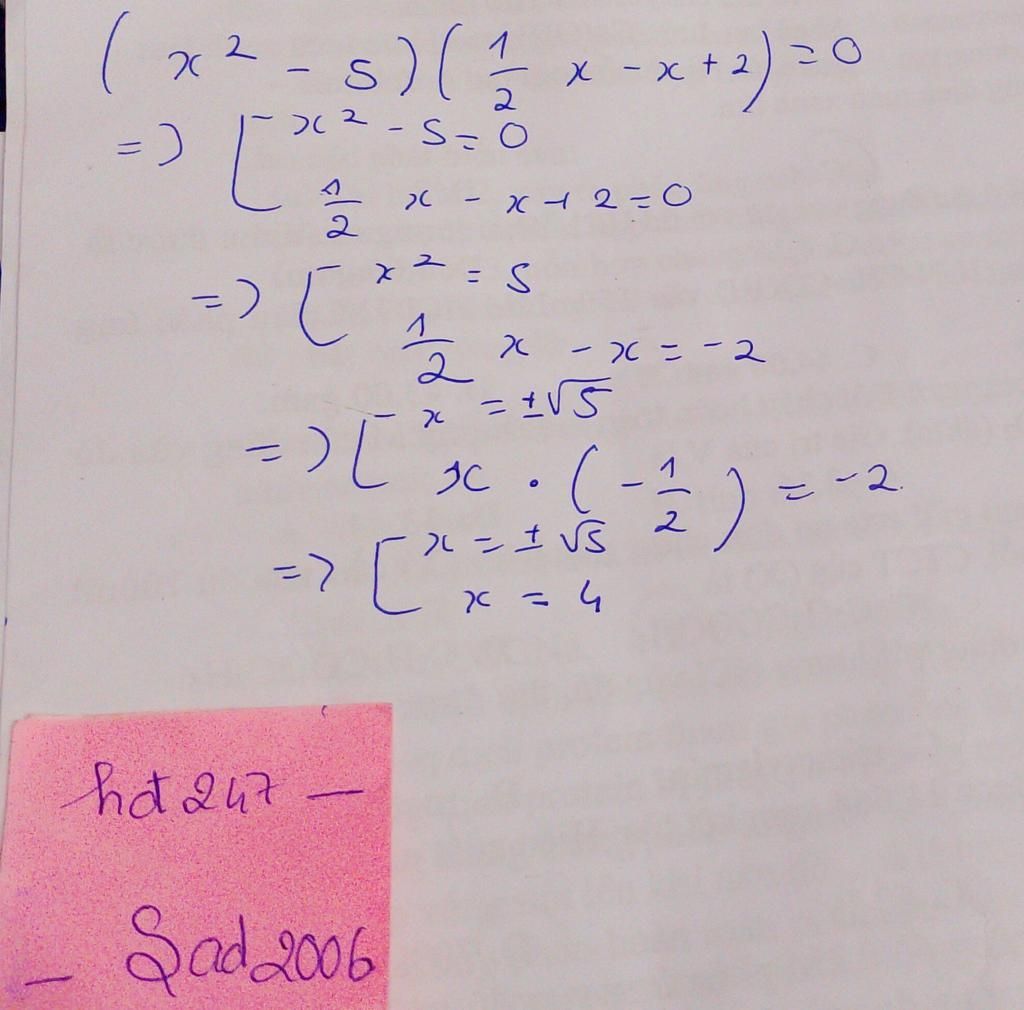 (x² - 5)(1/2 x - x + 2) = 0
=> [ x² - 5 = 0
1/2 x - x + 2 = 0
=> [ x² = 5
1/2 x - x = -2
=> [ x = ±√5
x . (-1/2) = -2
=> [ x = ±√5
x = 4
hdt247 —
— Sad2006